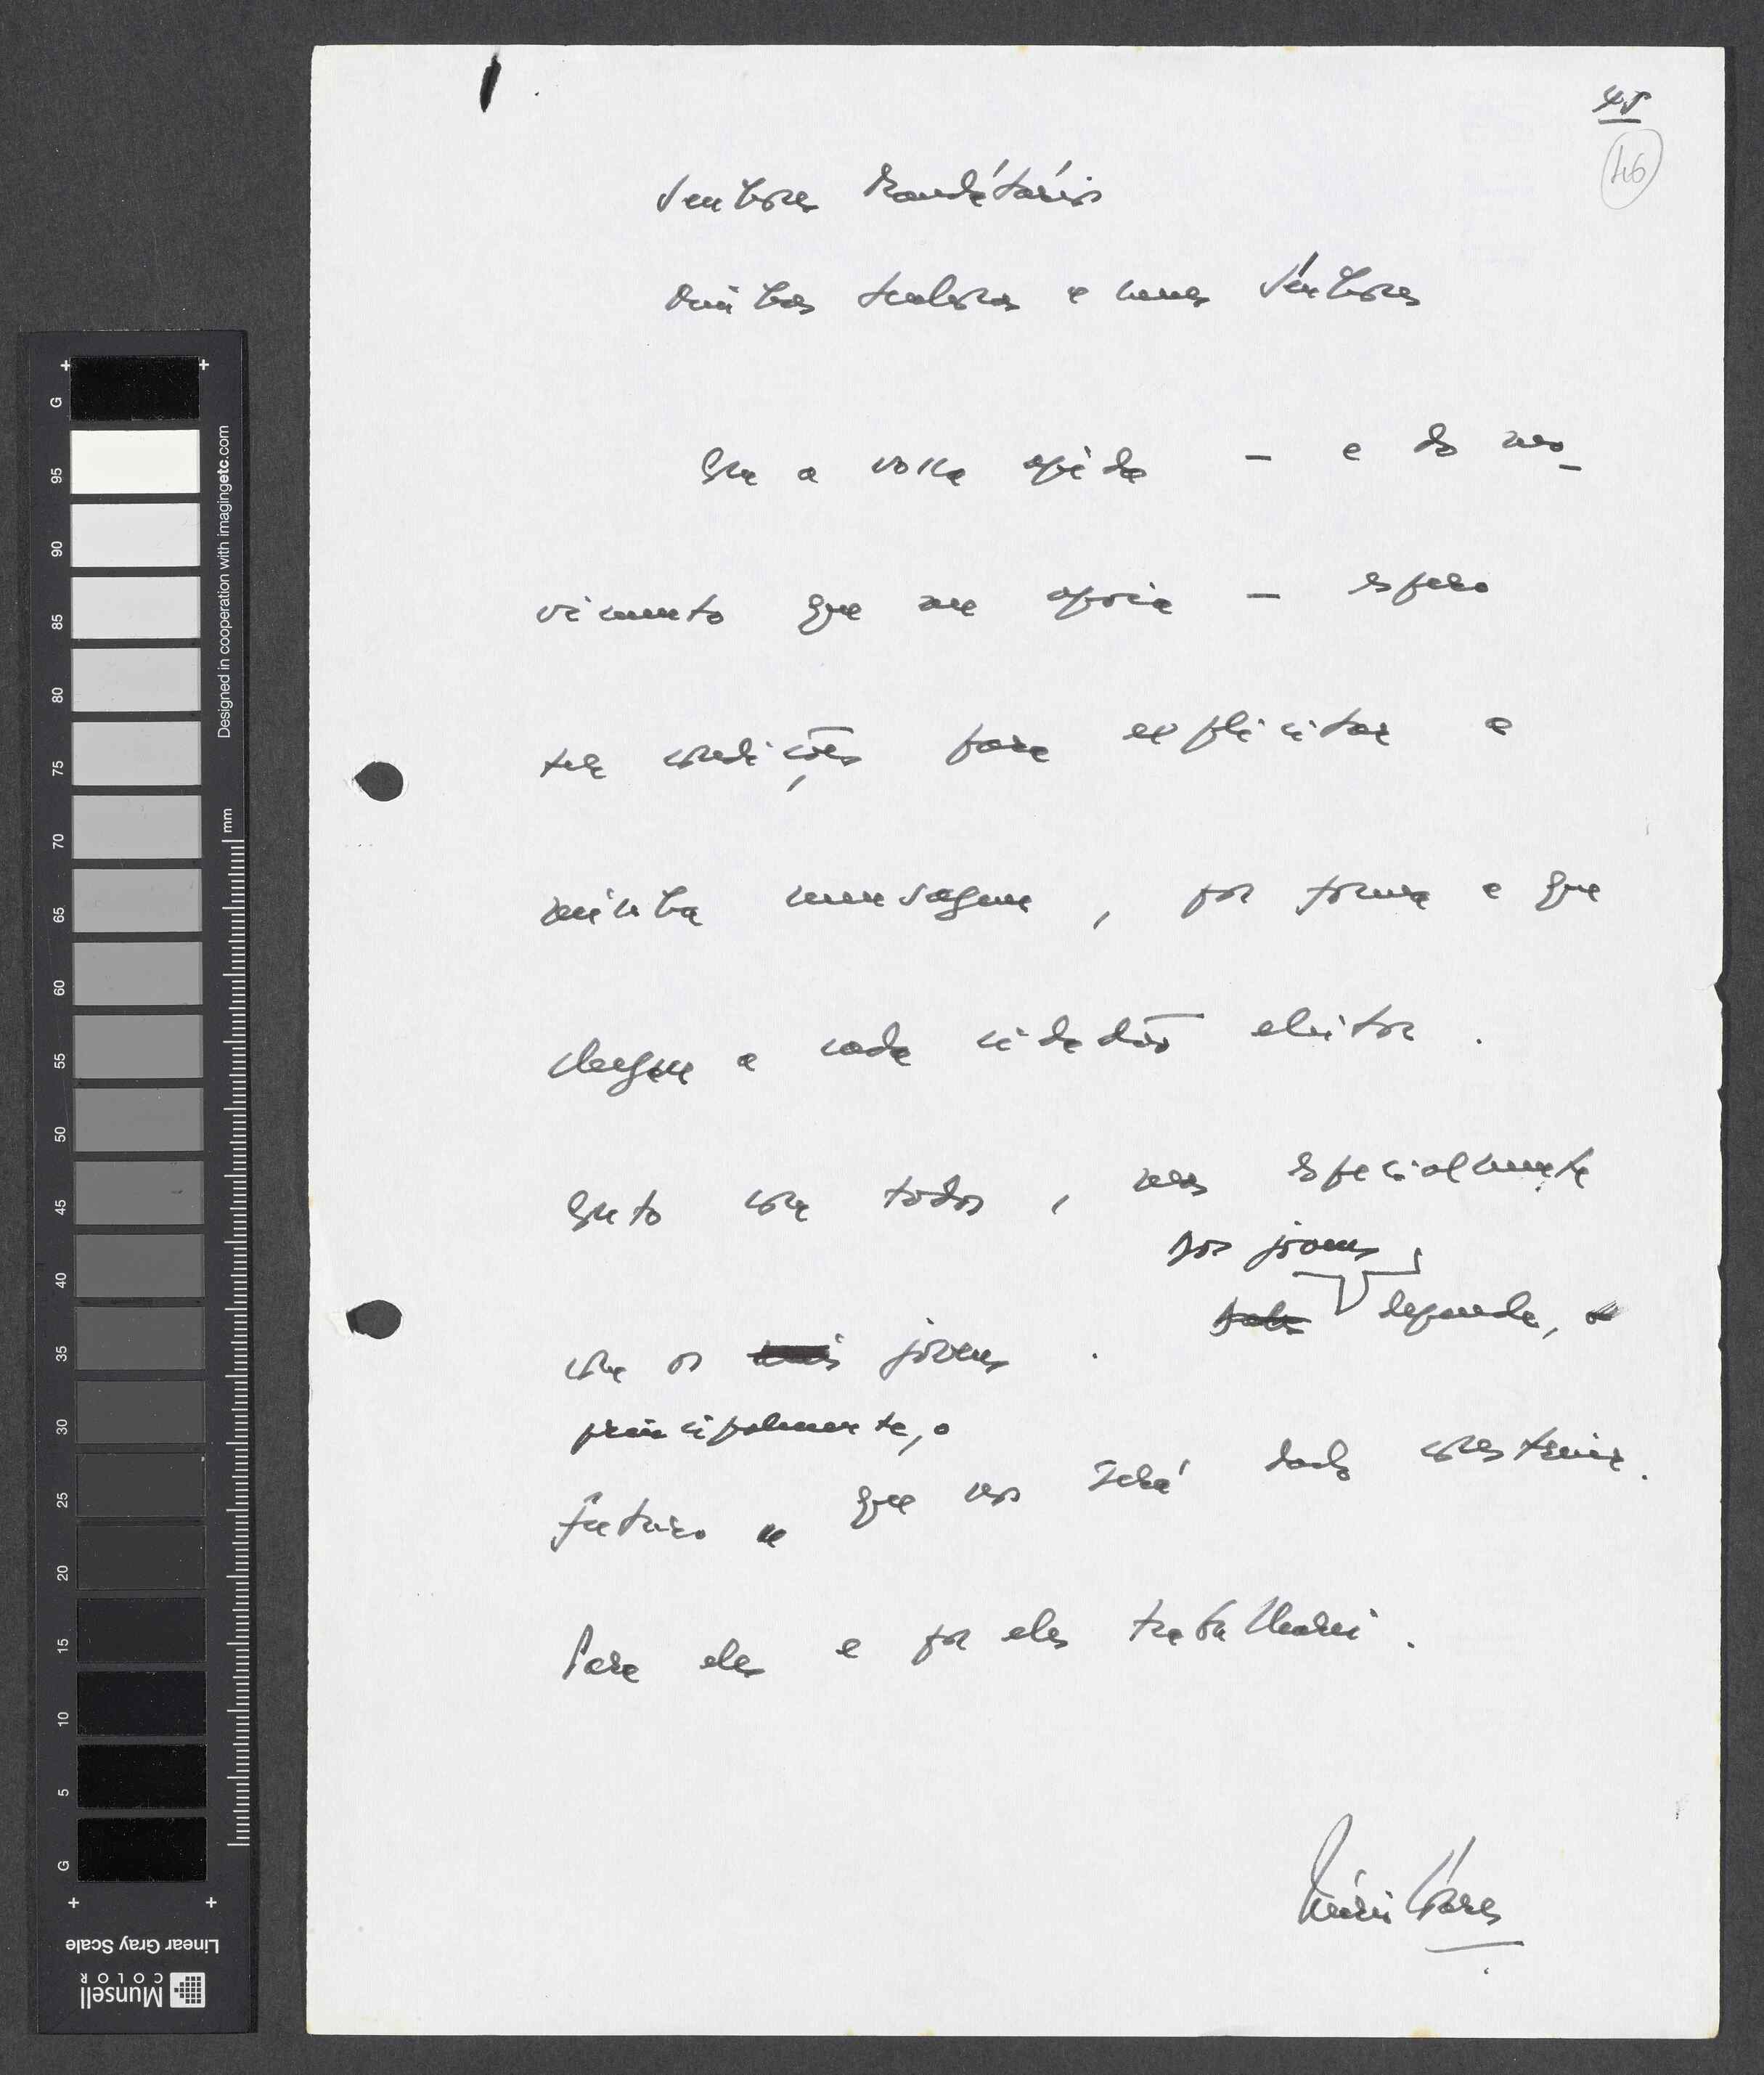 45
46
Senhores Mandatários
Minhas senhoras e meus senhores
Com a vossa ajuda — e do mo-
vimento que me apoia — espero
ter condições para explicitar a
minha mensagem, por forma a que
chegue a cada cidadão eleitor.
Conto com todos, mas especialmente
dos jovens,
com os mais jovens. Deles depende, o
principalmente, o
futuro que nos será dado construir.
Para eles e por eles trabalharei.
Mário Soares
G
95
90
85
80
75
70
65
60
55
50
45
40
35
30
25
20
15
10
5
G
Designed in cooperation with imagingetc.com
mm
Linear Gray Scale
Munsell
COLOR